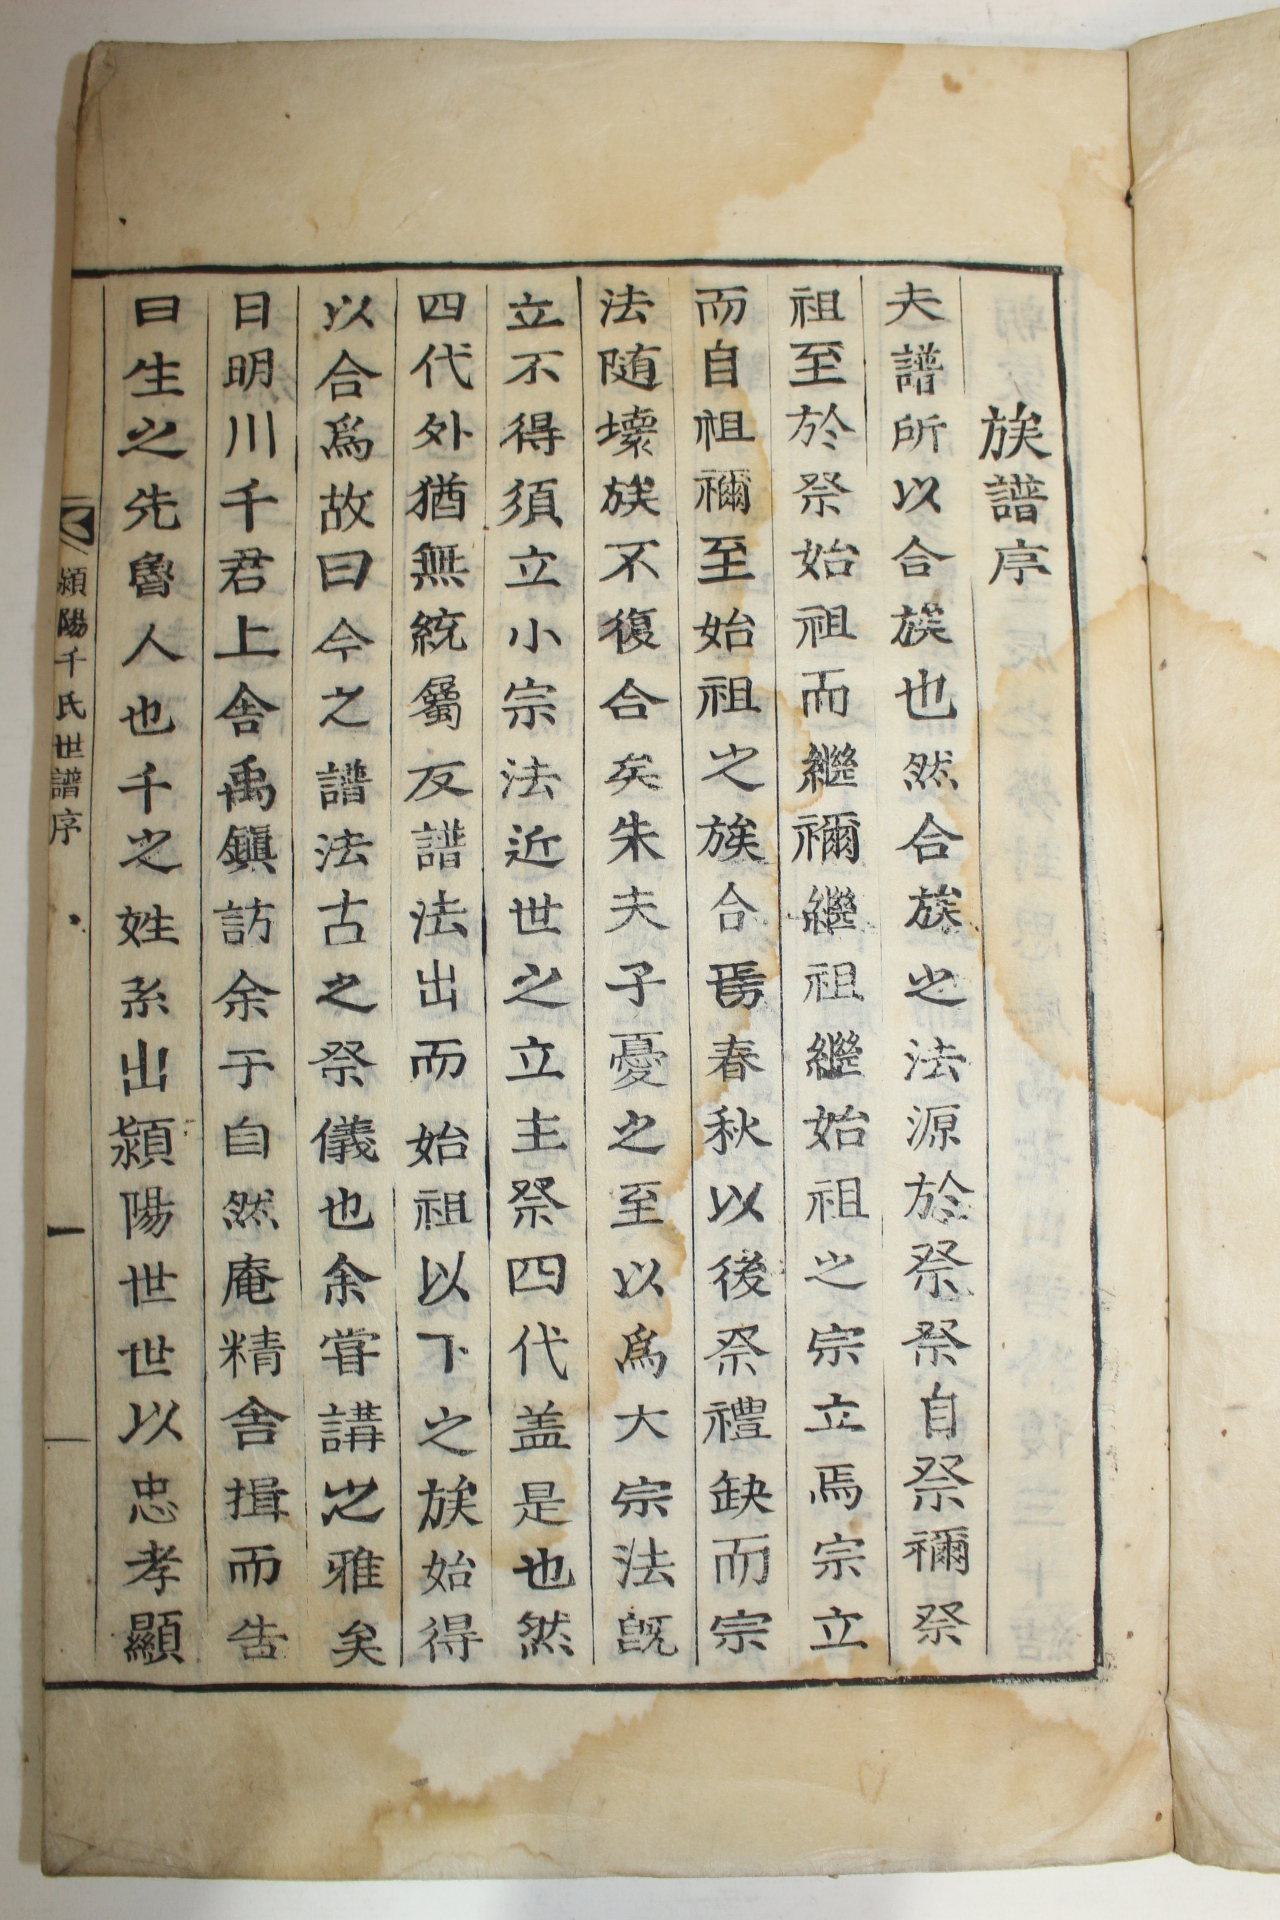 族譜序
夫譜所以合族也然合族之法源於祭祭自祭禰祭
祖至於祭始祖而繼禰繼祖繼始祖之宗立焉宗立
而自祖禰至始祖之族合焉春秋以後祭禮缺而宗
法随壞族不復合矣朱夫子憂之至以爲大宗法旣
立不得須立小宗法近世之立主祭四代盖是也然
四代外猶無統屬及譜法出而始祖以下之族始得
以合爲故曰今之譜法古之祭儀也余甞講之雅矣
日明川千君上舍禹鎭訪余于自然庵精舍揖而告
曰生之先魯人也千之姓系出潁陽世世以忠孝顯
潁陽千氏世譜序
一